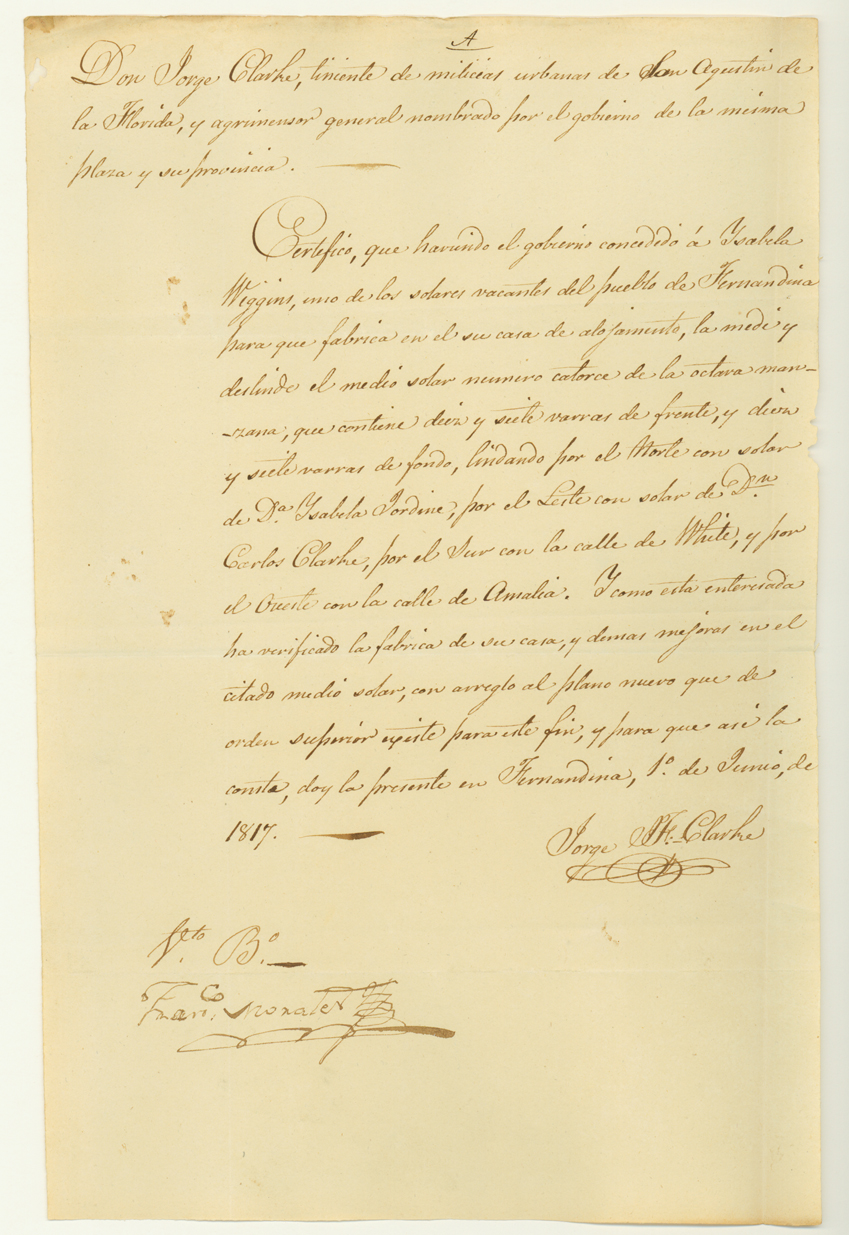 A
Don Jorge Clarke, tiniente de milicias urbanas de San Agustin de
la Florida, y agrimensor general nombrado por el gobierno de la misma
plaza y su provincia.
Certifico, que haviendo el gobierno concedido á Ysabela
Wiggins, uno de los solares vacantes del pueblo de Fernandina
para que fabrica en el su casa de alojamento, la medi y
deslinde el medio solar numero catorce de la octava man-
-zana, que contiene diez y siete varras de frente, y diez
y siete varras de fondo, lindando por el Norte con solar
de Dª Ysabela Jordine, por el Leste con solar de Dn
Carlos Clarke, por el Sur con la calle de White, y por
el Oueste con la calle de Amalia. Y como esta enteresada
ha verificado la fabrica de su casa, y demas mejoras en el
citado medio solar, con arreglo al plano nuevo que de
orden superior existe para este fin, y para que asi la
conste, doy la presente en Fernandina, 1º de Junio, de
1817.
Jorge J. F. Clarke
V.to B.o
Fran.co Morales